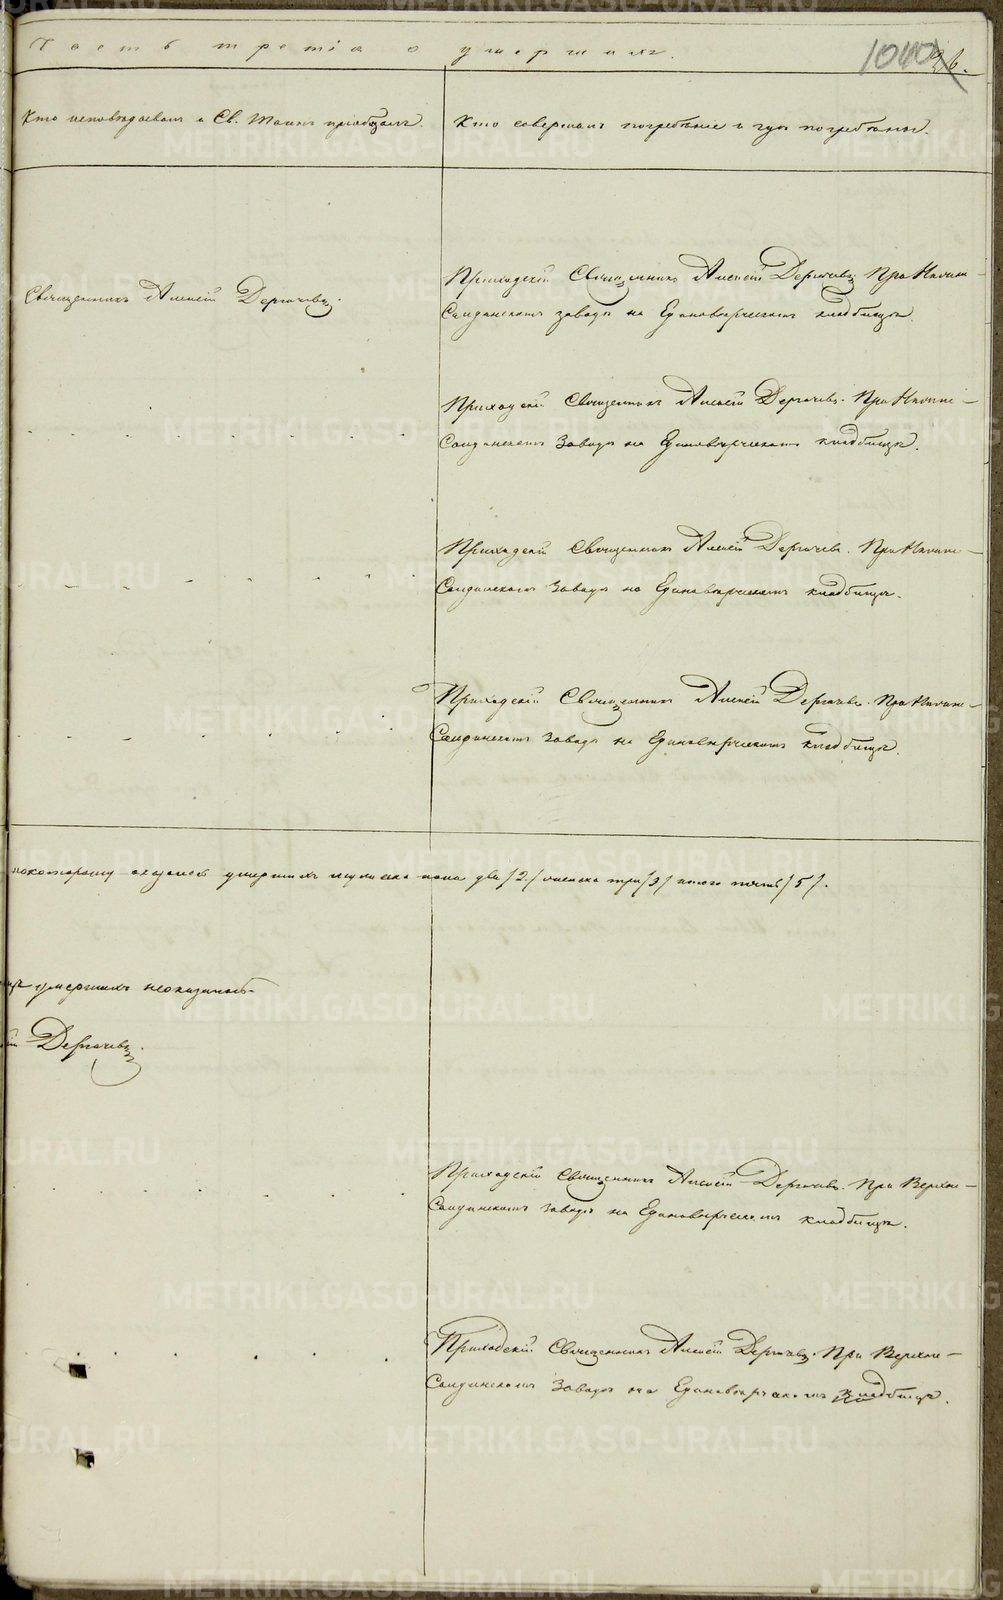 Часть третія о умершихъ
1040 36.
Кто исповѣдовалъ и Св. Таинъ пріобщалъ.
Кто совершалъ погребѣніе и гдѣ погребены.
Священникъ Алексій Дергачевъ.
Приходскій Священникъ Алексій Дергачевъ При Нижне-
Салдинскомъ заводѣ на Единовѣрческомъ кладбищѣ.
Приходскій Священникъ Алексій Дергачевъ. При Нижне-
Салдинскомъ Заводѣ на Единовѣрческомъ кладбищѣ.
Приходскій Священникъ Алексій Дергачевъ. При Нижне-
Салдинскомъ Заводѣ на Единовѣрческомъ кладбищѣ.
Приходскій Священникъ Алексій Дергачевъ. При Нижне-
Салдинскомъ Заводѣ на Единовѣрческомъ кладбищѣ.
покоторому оказалось умершихъ мужеска пола два /2/ женска три /3/ всего пять /5/.
умершихъ неоказалось-
Дергачевъ.
Приходскій Священникъ Алексій Дергачевъ. При Верхне-
Салдинскомъ заводѣ на Единовѣрческомъ кладбищѣ.
Приходскій Священникъ Алексій Дергачевъ. При Верхне-
Салдинскомъ Заводѣ на Единовѣрческомъ кладбищѣ.
METRIKI.GASO-URAL.RU